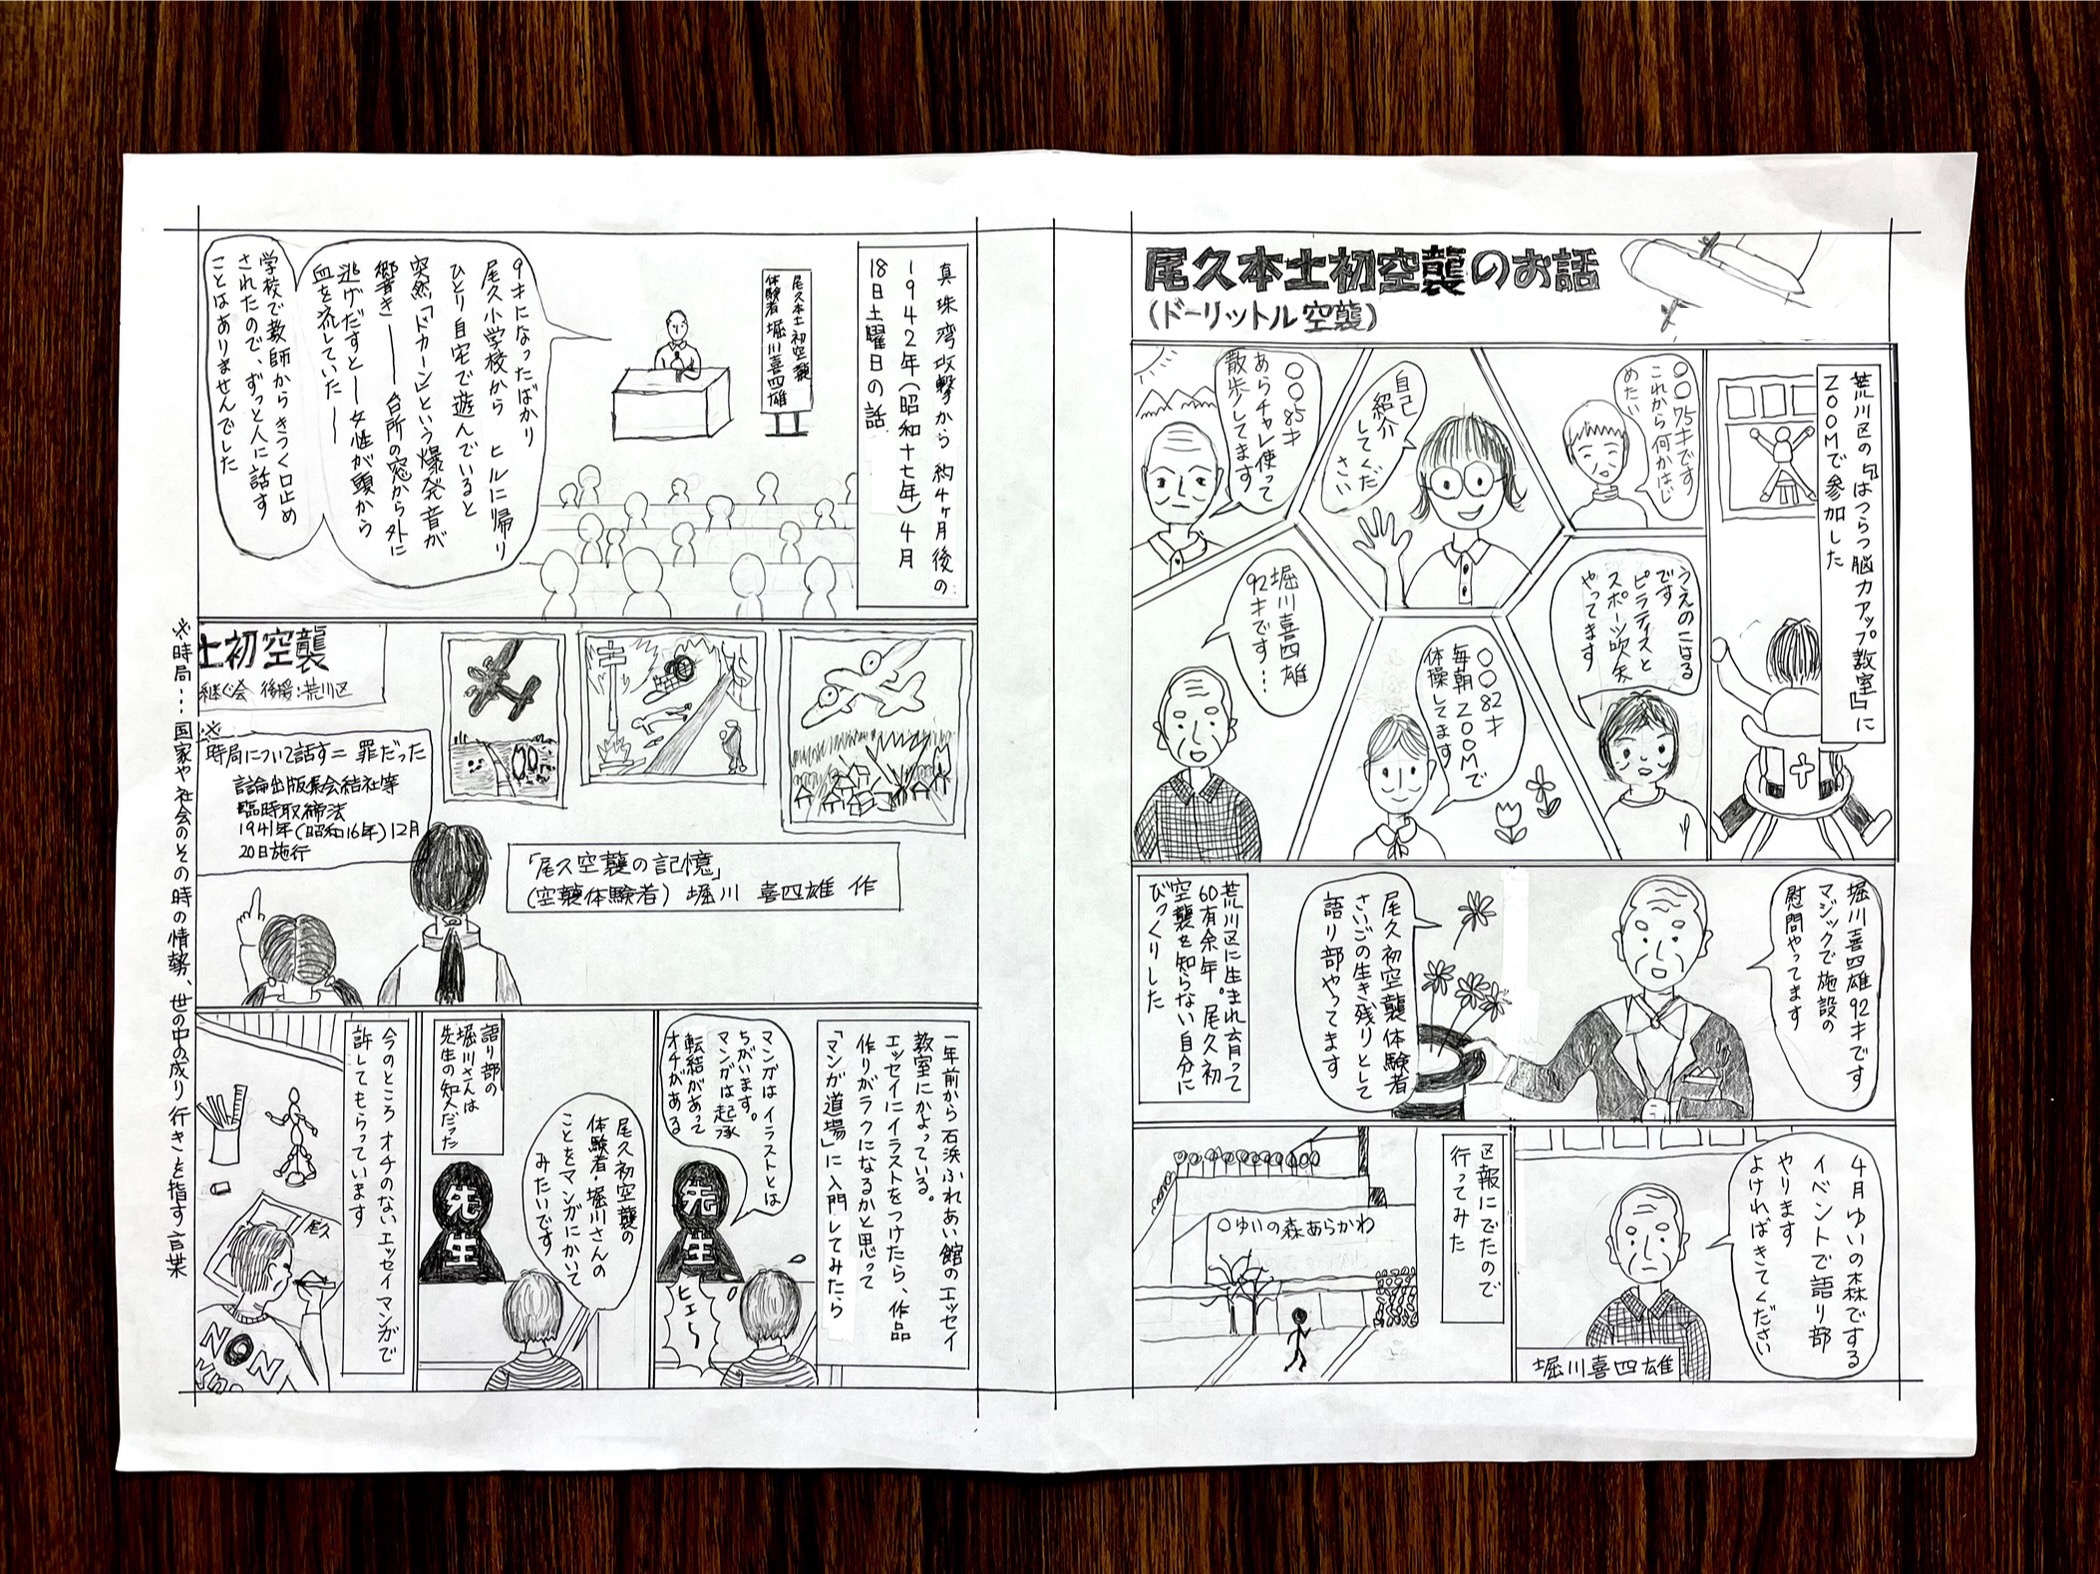 尾久本土初空襲のお話
(ドーリットル空襲)
荒川区の『はつらつ脳力アップ教室』に
ZOOMで参加した
〇〇75才です
これから何かはじ
めたい
自己
紹介
してくだ
さい
〇〇85才
あらチャレ使って
散歩してます
うえのこはる
です
ピラティスと
スポーツ吹矢
やってます
〇〇82才
毎朝ZOOMで
体操してます
堀川喜四雄
92才です…
ゆ
堀川喜四雄92才です
マジックで施設の
慰問やってます
尾久初空襲体験者
さいごの生き残りとして
語り部やってます
荒川区に生まれ育って
60有余年。尾久初
空襲を知らない自分に
びっくりした
4月ゆいの森でする
イベントで語り部
やります
よければきてください
堀川喜四雄
区報にでたので
行ってみた
〇ゆいの森あらかわ
真珠湾攻撃から約4ヶ月後の
1942年(昭和十七年)4月
18日土曜日の話
尾久本土初空襲
体験者 堀川喜四雄
9才になったばかり
尾久小学校から ヒルに帰り
ひとり自宅で遊んでいると
突然「ドカーン」という爆発音が
響き――台所の窓から外に
逃げだすと――女性が頭から
血を流していた――
学校で教師からきつく口止め
されたので、ずっと人に話す
ことはありませんでした
士初空襲
継ぐ会 後援:荒川区
※
時局について話す=罪だった
言論出版集会結社等
臨時取締法
1941年(昭和16年)12月
20日施行
「尾久空襲の記憶」
(空襲体験者) 堀川 喜四雄 作
一年前から石浜ふれあい館のエッセイ
教室にかよっている。
エッセイにイラストをつけたら、作品
作りがラクになるかと思って
「マンガ道場」に入門してみたら
マンガはイラストとは
ちがいます。
マンガは起承
転結があって
オチがある
先生
ヒエ〜
語り部の
堀川さんは
先生の知人だった
先生
尾久初空襲の
体験者・堀川さんの
ことをマンガにかいて
みたいです
今のところ オチのないエッセイマンガで
許してもらっています
尾久
NON
※時局…国家や社会のその時の情勢、世の中の成り行きを指す言葉